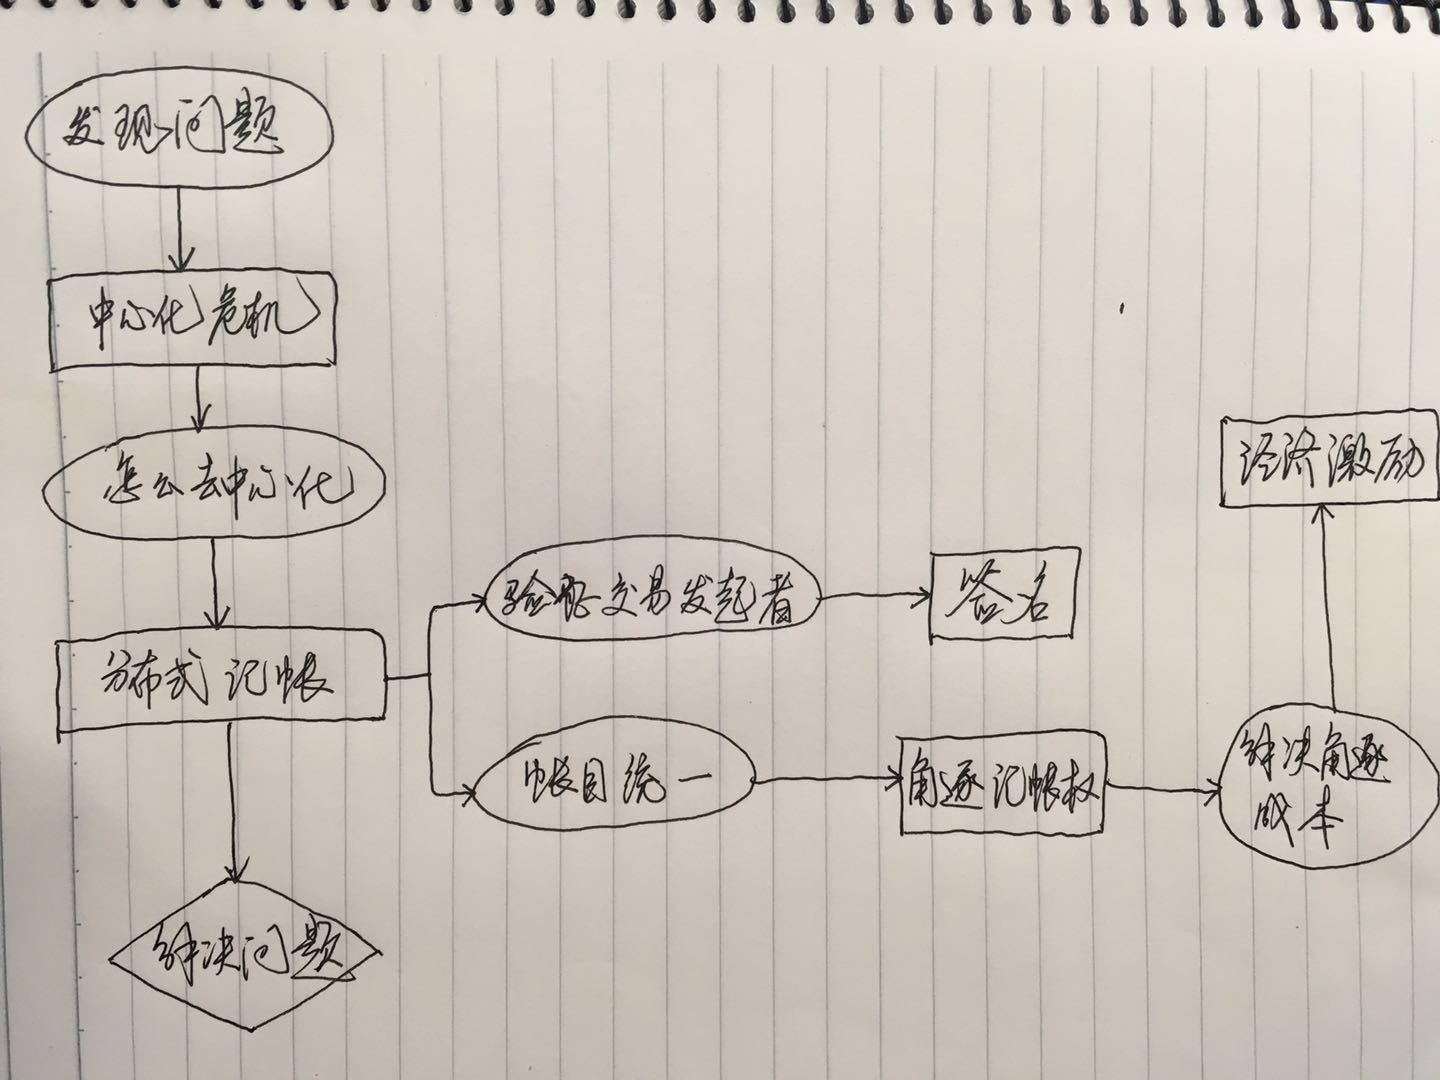 发现问题
中心化危机
怎么去中心化
分布式记帐
解决问题
验证交易发起者
签名
帐目统一
角逐记帐权
解决角逐
成本
经济激励